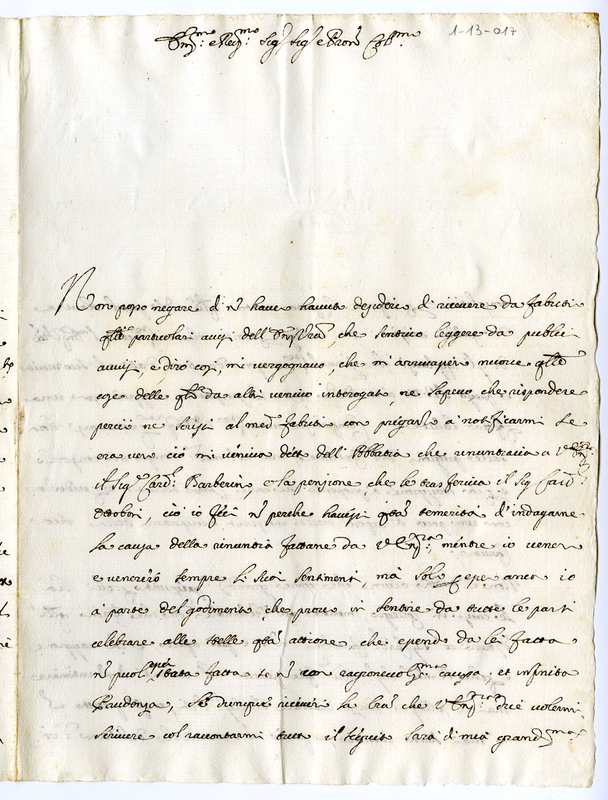 1-13-017
Em.mo e Rev.mo Sig.r Sig.r e Pron Col.mo
Non posso negare di nõ haver havuto desiderio di ricevere da Fabutii
particolari avvisi dell' che sentivo leggere da publici
avvisi, e dirò così, mi vergognavo, che m'arrivassero nuove
cose delle da altri venivo interogato, ne sapevo che rispondere
perciò ne scrissi al med.o Fabutii con pregarlo a notificarmi se
era vero ciò mi veniva detto dell' Abbatia che rinuntiava a V.
il Sig.r Card. Barberin, e la pensione, che le trasferiva il Sig. Card.
Ottobon, ciò io feci nõ perche havessi temerità d'indagarne
la causa della rinuntia fattane da V. Em.ra mentre io venero
e venererò sempre li suoi sentimenti mà solo p esser anco io
à parte del godimento che provo in sentire da tutte le parti
celebrare alle stelle attione, che essendo da lei fatta
nõ puol esser stata fatta se nõ con ragionevol.ma causa, et infinita
Prudenza, Se dunque ricever la che V. Em.ra dice volermi
scrivere col raccontarmi tutto il seguito sarà di mia grand.ma